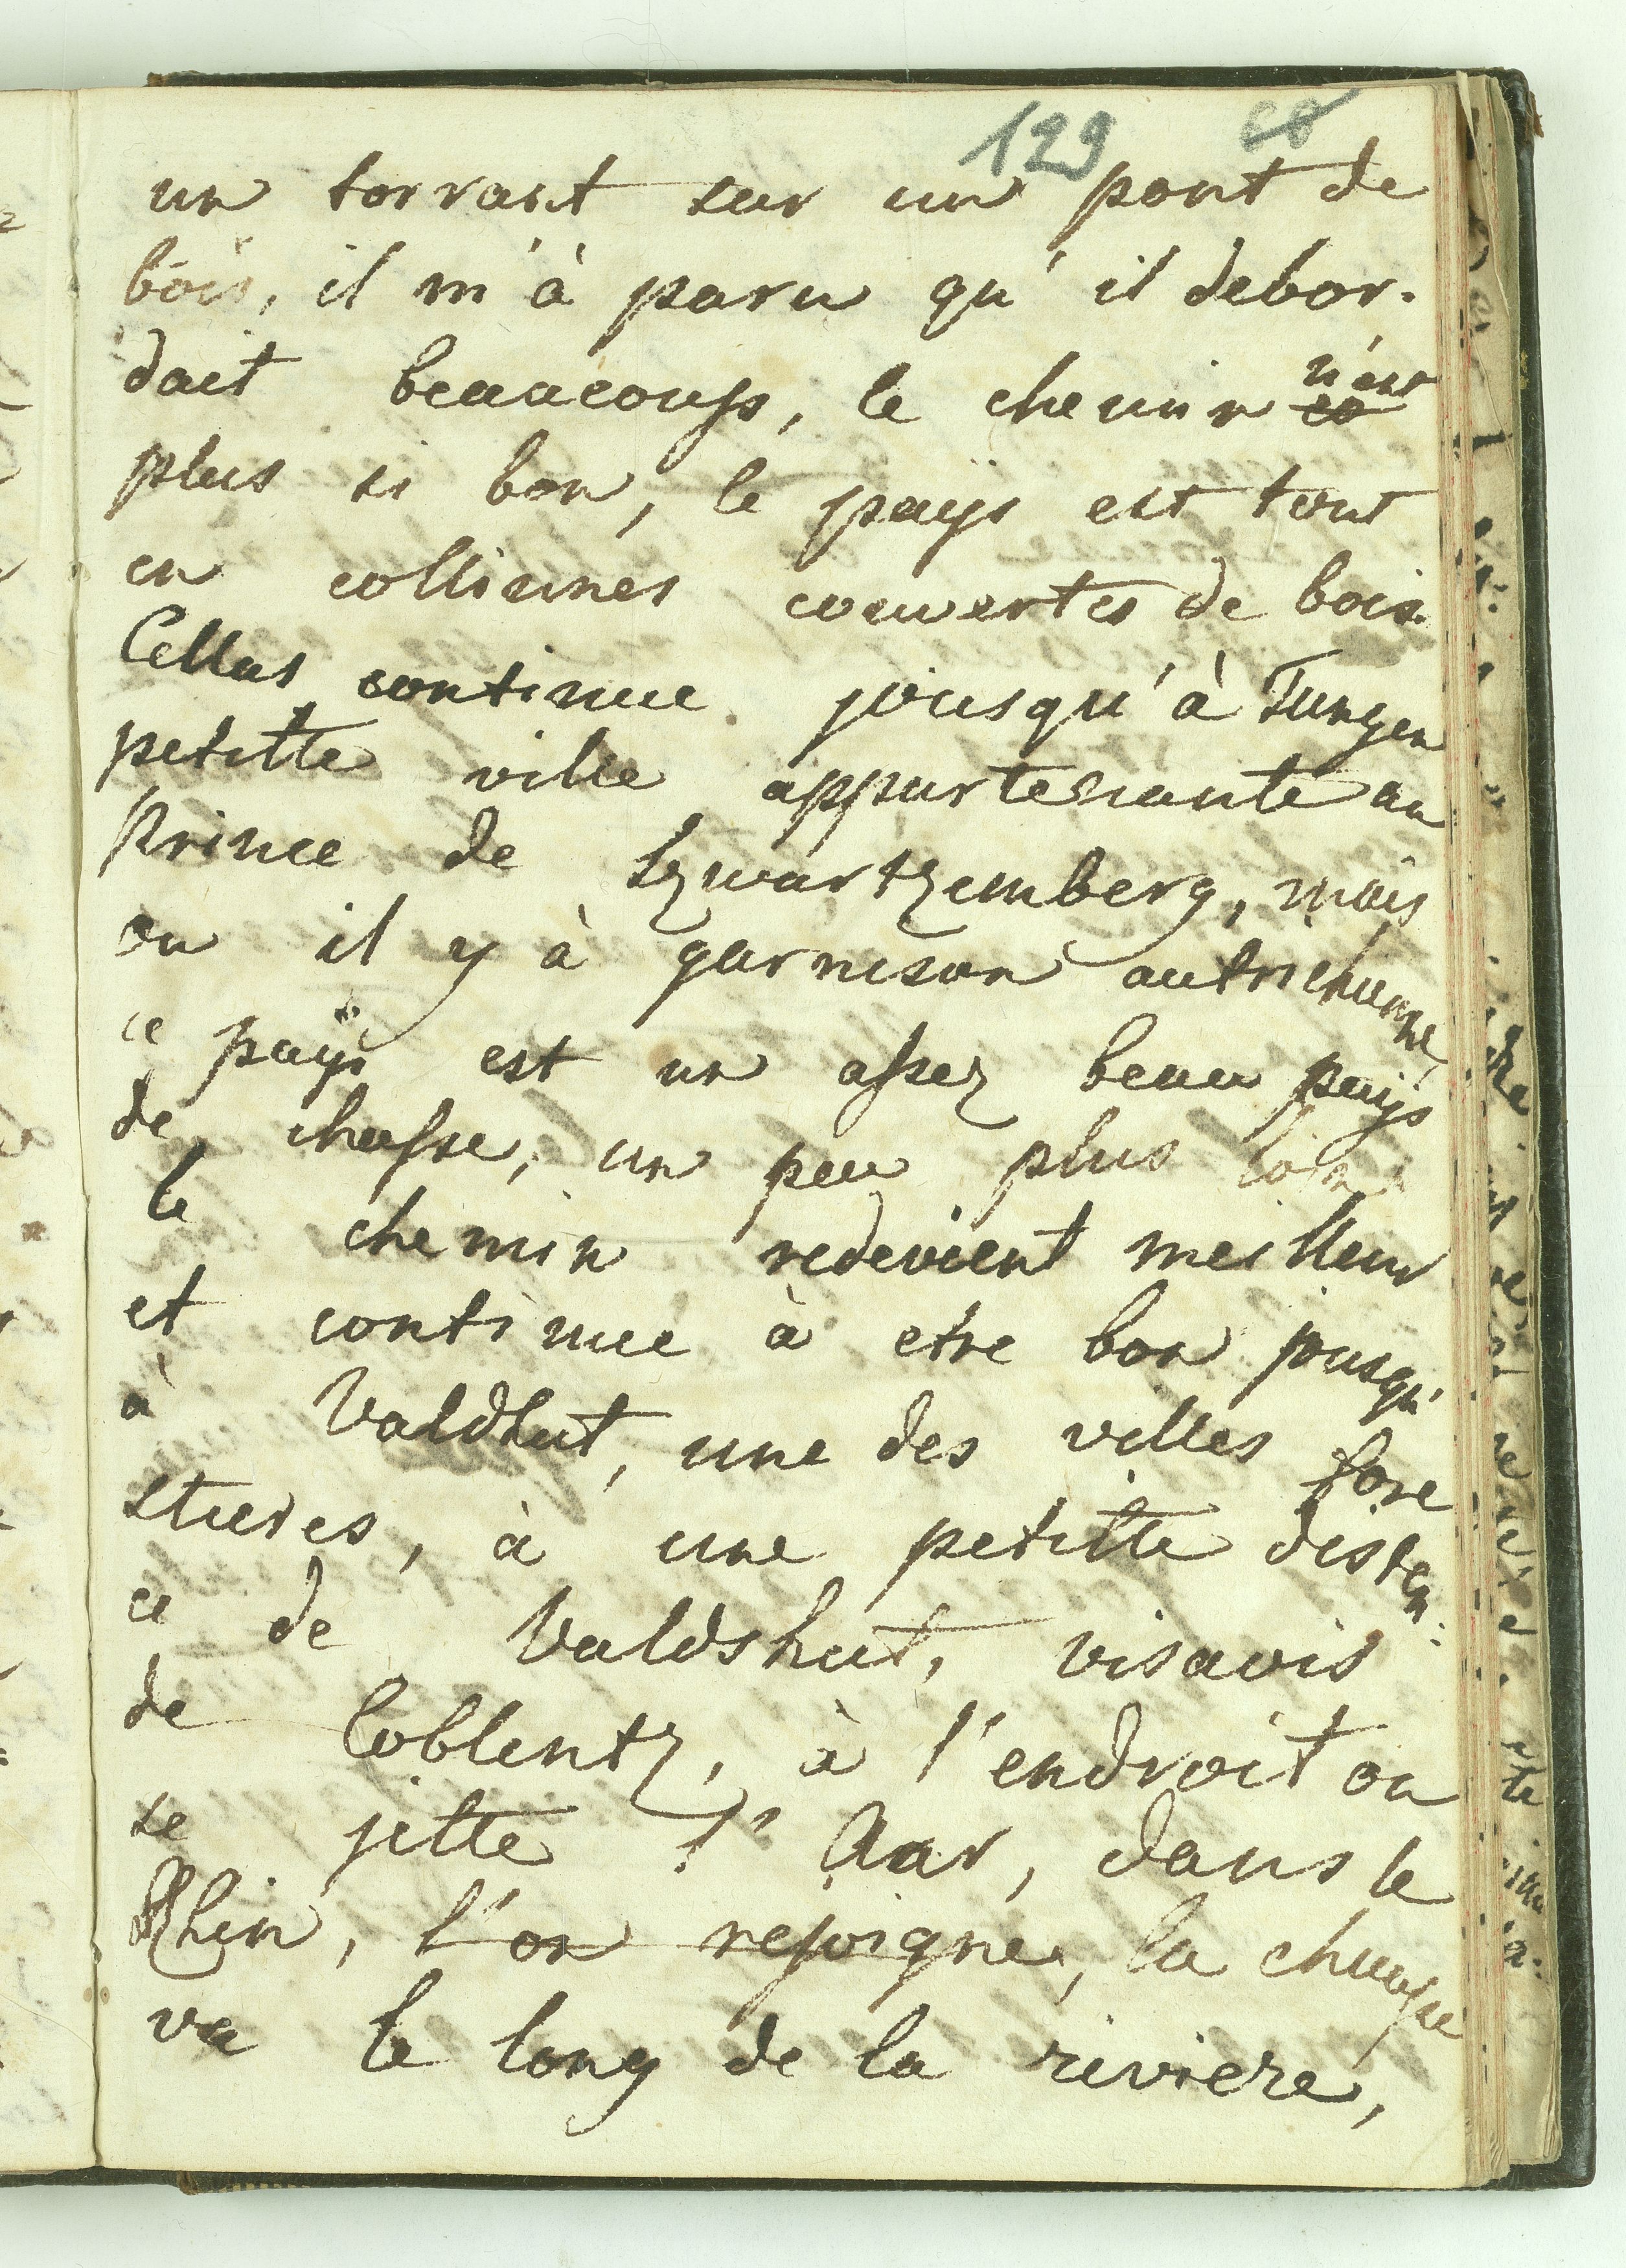 129
un torrant sur un pont de
bois, il m'à paru qu'il debor-
dait beaucoup, le chemin n'est
plus si bon, le paÿs est tout
en collinnes couvertes de bois.
Cellas continue jousqu'à Tungen
petitte ville appartenante au
Prince de Szwartzemberg, mais
ou il y à garnison autrichienne,
ce paÿs est un assez beau paÿs
de chasse, un peu plus loin
le chemin redevient meilleur
et continue à etre bon jousqu'
à Valdhut, une des villes fore
stieres, à une petitte distan:
ce de Valdshut, visavis
de Coblentz, à l'endroit ou
se jette l'Aar, dans le
Rhin, l'on rejoigne, la chaussé
va le long de la riviere,